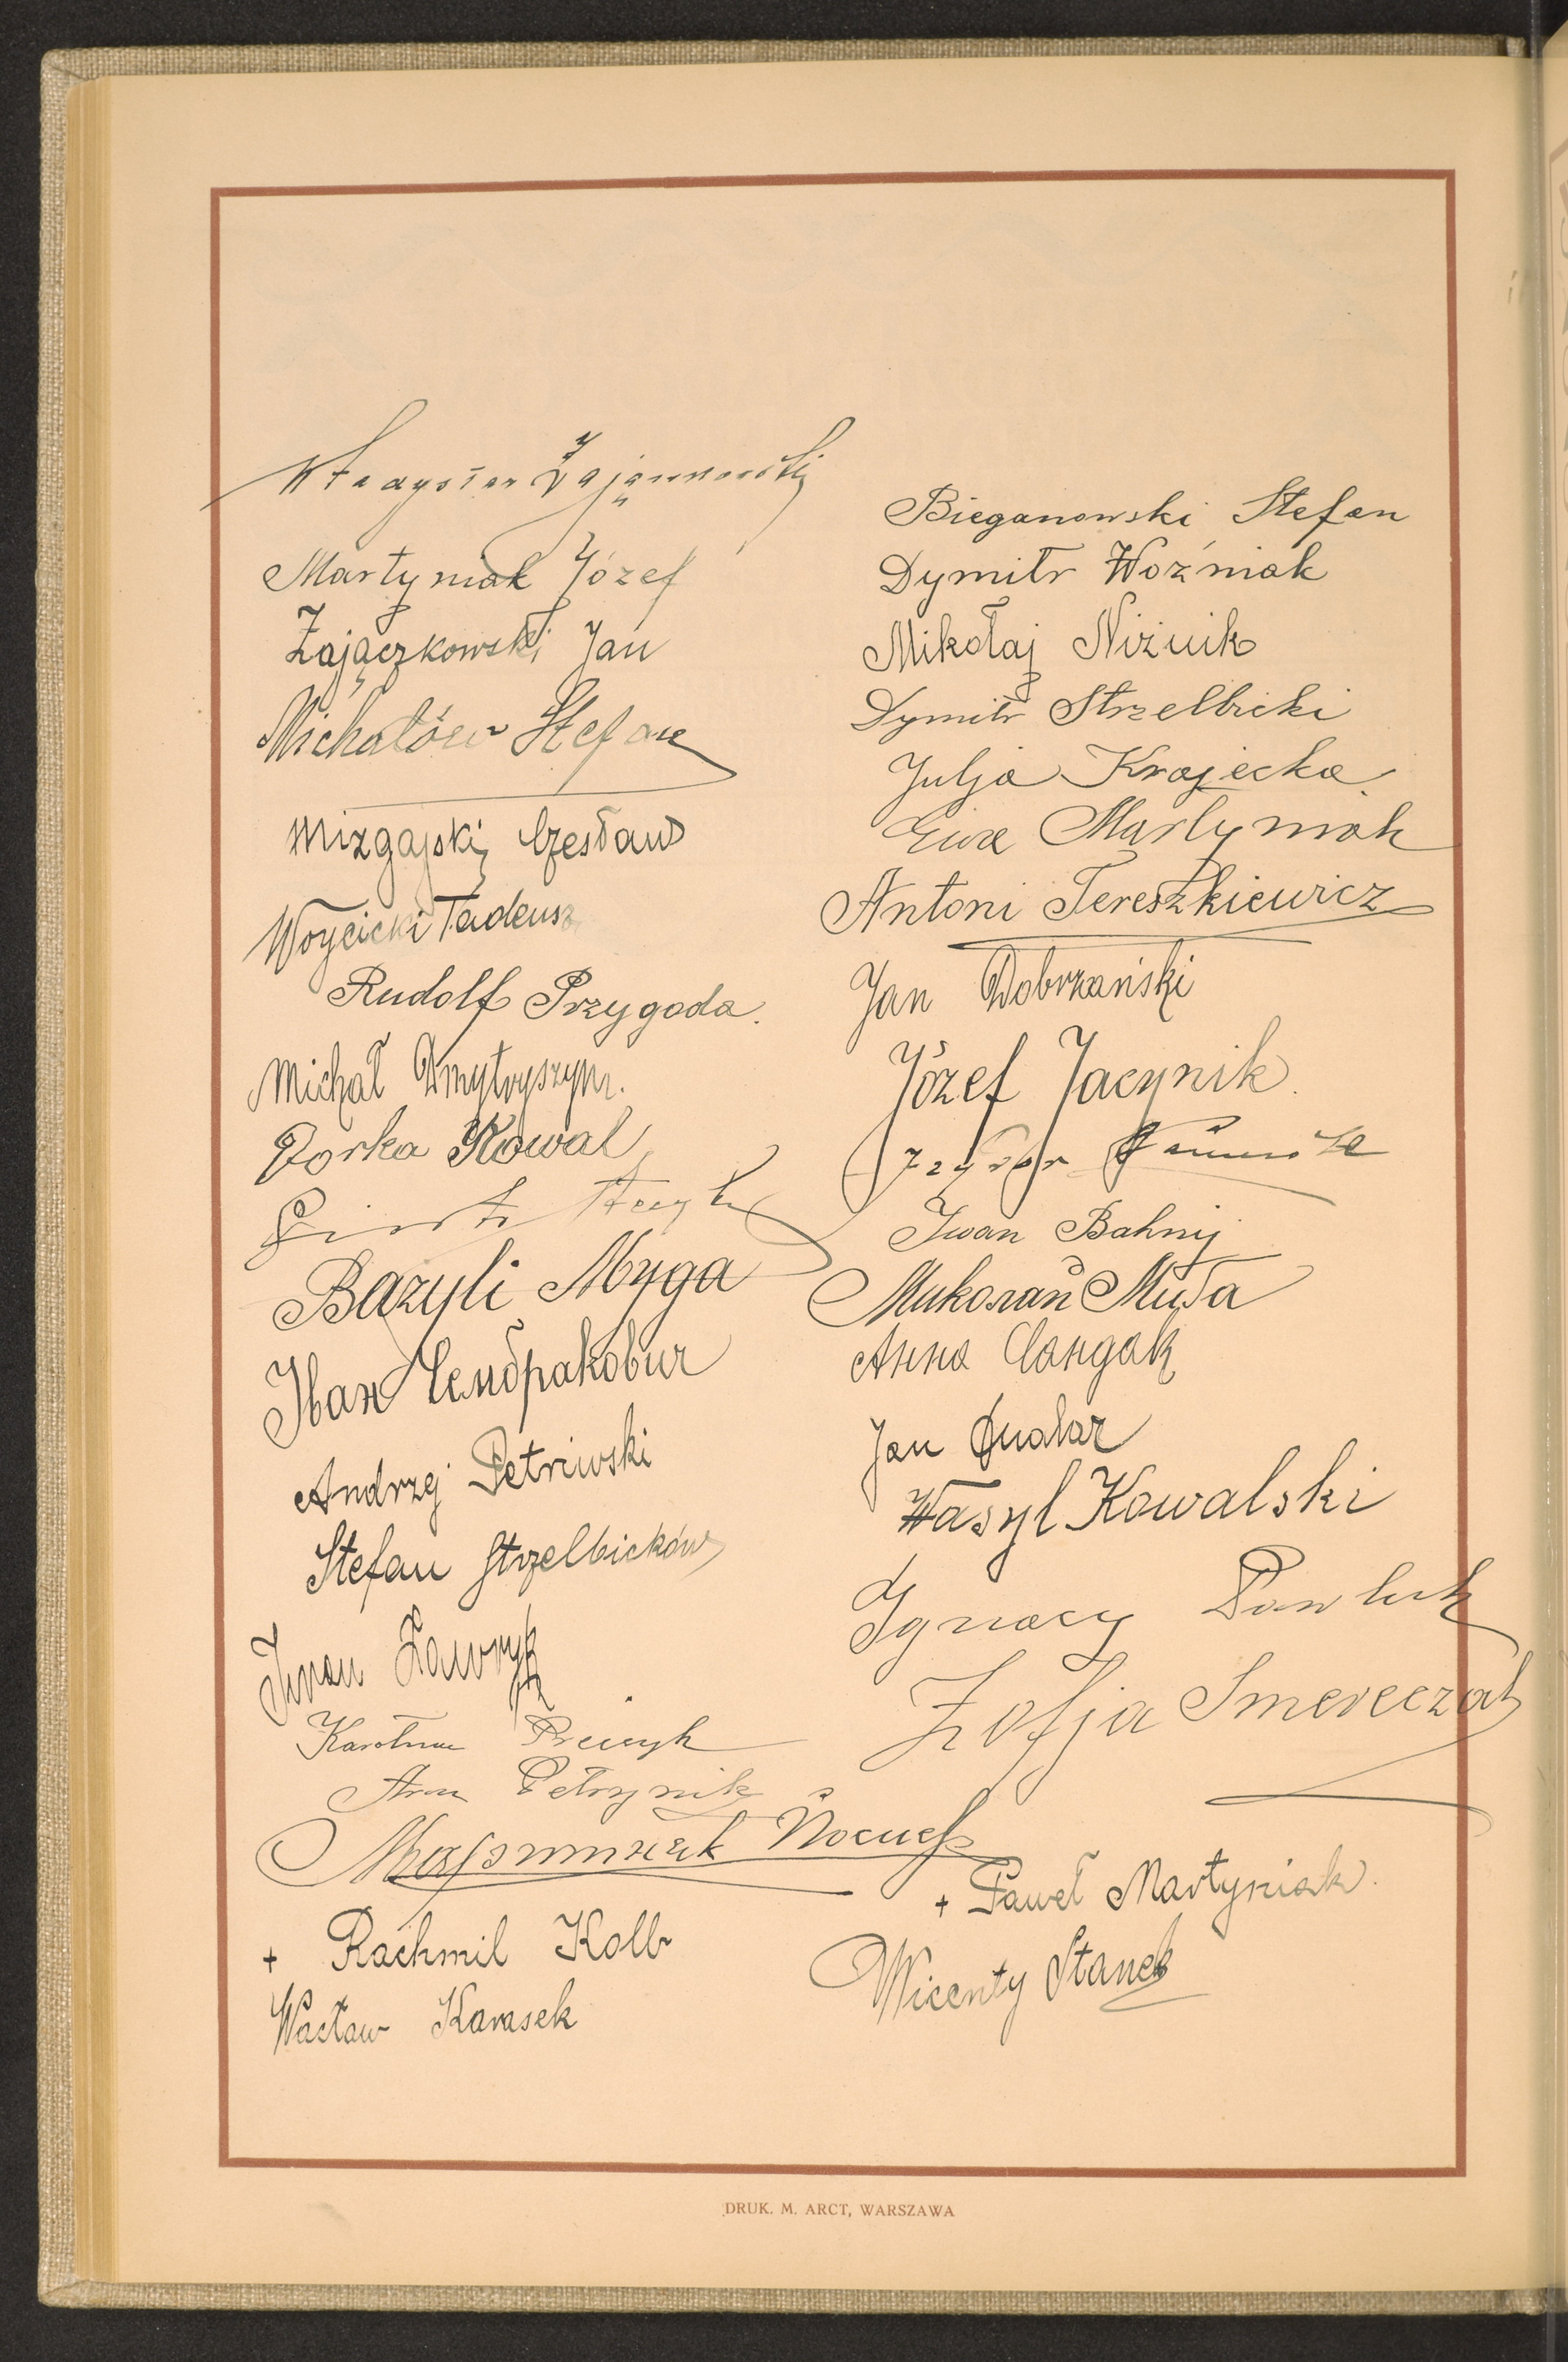 Władysław Zajączkowski
Martyniak Józef
Zajączkowski Jan
Michałów Stefan
Mizgajski Czesław
Woycicki Tadeusz
Rudolf Przygoda.
Michał Dmytryszyn.
Dorka Kowal
Piotr
Bazyli Myga
Іван
Andrzej Petriwski
Stefan Strzelbicków
Iwan Ławryk
Karolina
Petrynik
+ Rachmil Kolb
Wacław Karasek
Bieganowski Stefan
Dymitr Woźniak
Mikołaj Niżnik
Dymitr Strzelbicki
Julja Krajecka
Ewa Martyniak
Antoni Tereszkiewicz
Jan Dobrzański
Józef Jacynik.
Iwan Bahnij
Миколай Мuła
Анна
Jan
Wasyl Kowalski
Ignacy Pawluk
Zofja Smereczak
+ Paweł Martyniak.
Wicenty Stanek
DRUK. M. ARCT, WARSZAWA